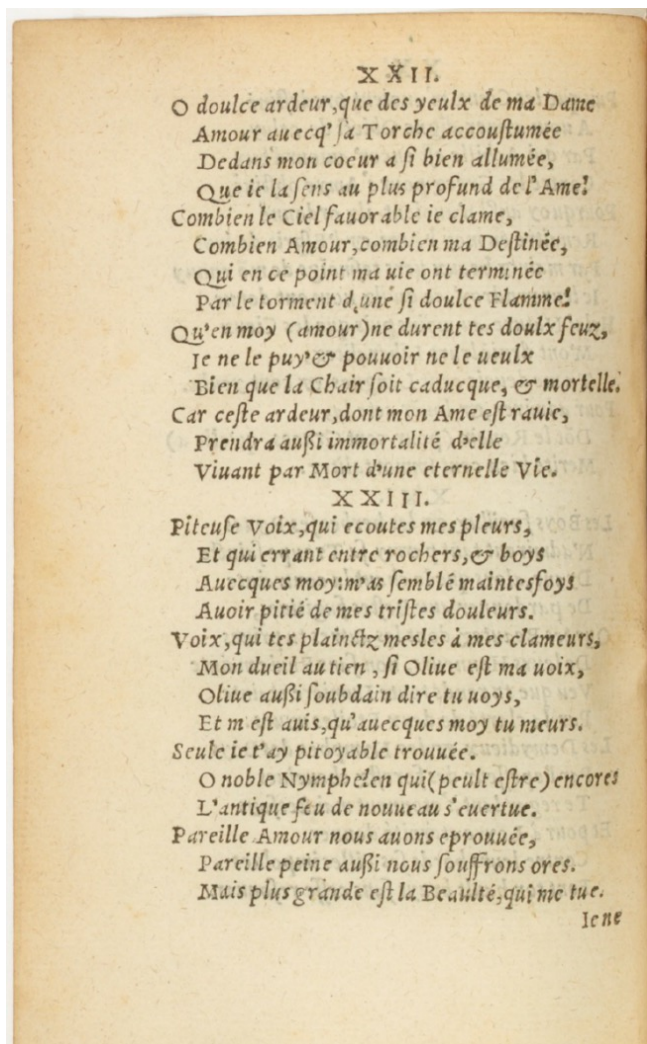 XXII.
O doulce ardeur, que des yeulx de ma Dame
Amour auecq' sa Torche accoustumée
Dedans mon coeur a si bien allumée,
Que ie la sens au plus profund de l'Ame!
Combien le Ciel fauorable ie clame,
Combien Amour, combien ma Destinée,
Qui en ce point ma uie ont terminée
Par le torment d,une si doulce Flamme!
Qu'en moy (amour) ne durent tes doulx feuz,
Je ne le puy' & pouuoir ne le ueulx
Bien que la Chair soit caducque, & mortelle.
Car ceste ardeur, dont mon Ame est rauie,
Prendra außi immortalité d'elle
Viuant par Mort d'une eternelle Vie.
XXIII.
Piteuse Voix, qui ecoutes mes pleurs,
Et qui errant entre rochers, & boys
Auecques moy: m'as semblé maintesfoys
Auoir pitié de mes tristes douleurs.
Voix, qui tes plainctz mesles à mes clameurs,
Mon dueil au tien, si Oliue est ma uoix,
Oliue außi soubdain dire tu uoys,
Et m est auis, qu'auecques moy tu meurs.
Seule ie t'ay pitoyable trouuée.
O noble Nymphe! en qui (peult estre) encores
L'antique feu de nouueau s'euertue.
Pareille Amour nous auons eprouuée,
Pareille peine außi nous souffrons ores.
Mais plus grande est la Beaulté, qui me tue.
Ie ne